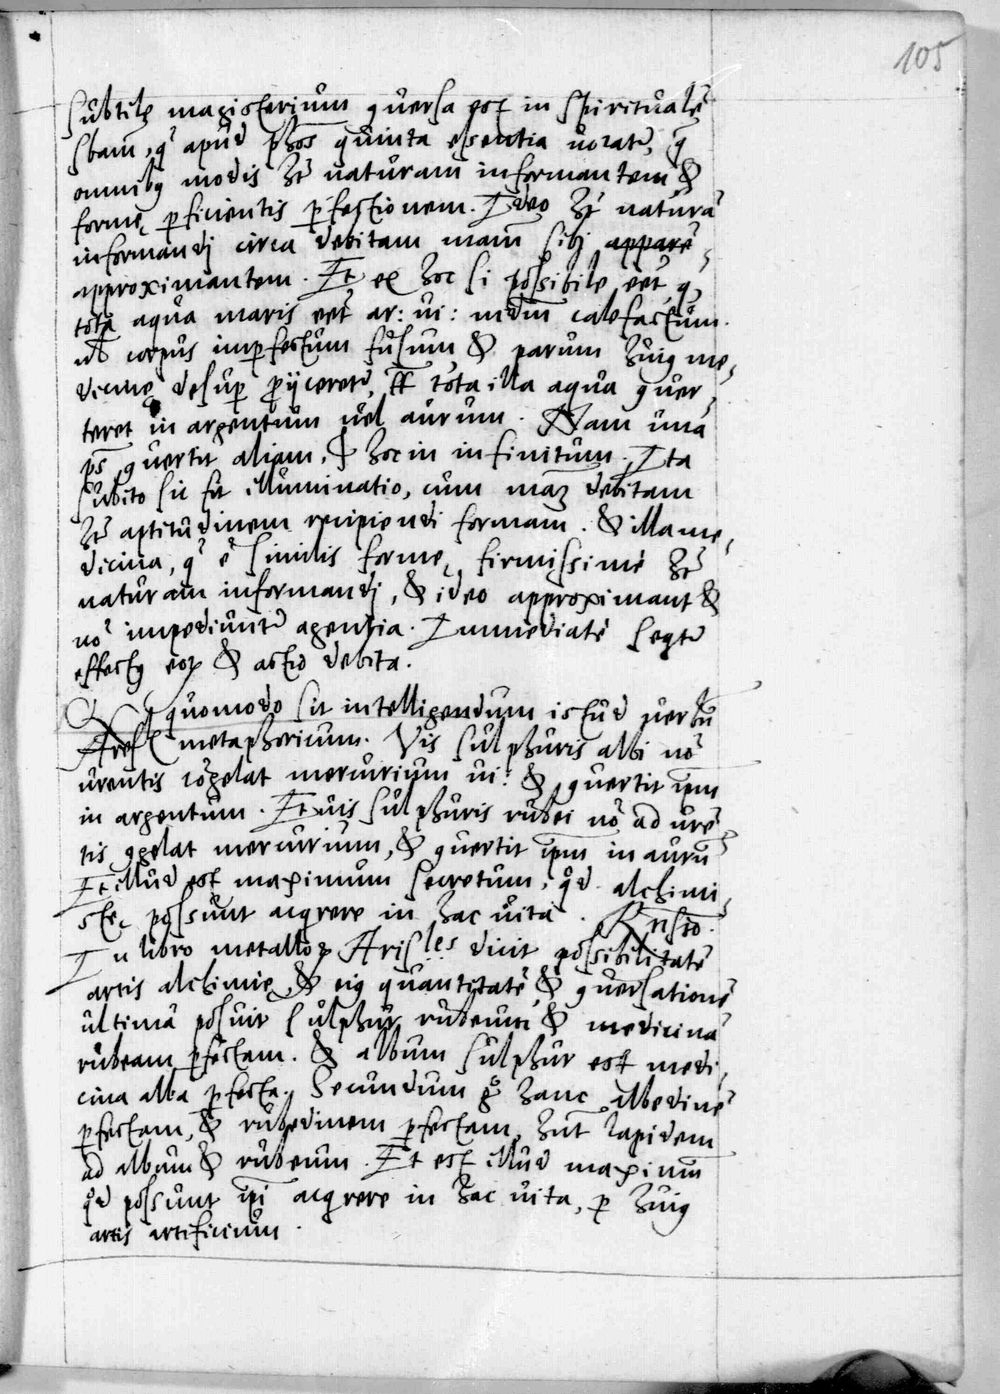 105
subtile magisterium ꝯuersa est in spiritualē
sbam, q̄ apud phos quinta essentia uocatr, q̄
omnibꝯ modis hēt naturam informantem &
formę ꝑficientis ꝑfectionem. Ideo hēt naturā
informandi circa debitam mam̄ sibi apparē
approximantem. Et ex hoc si possibile eēt, q,
tota aqua maris eēt ar: ui: mdm̄ calefactum.
uł corpus imꝑfectum fusum & parum huiꝯ me,
dicinę desuꝑ ꝓijceretr, tota illa aqua ꝯuer,
teretr in argentum uel aurum. Nam una
ps ꝯuertit aliam, & hoc in infinitum. Ita
subito sic fit illuminatio, cum mam̄ debitam
hēt aptitudinem recipiendi formam. & illa me,
dicina, q̄ ē similis formę, firmissimè hēt
naturam informandi, & ideo approximant &
nō impediuntr agentia. Immediatè seqtr
effectꝯ eoꝝ & actio debita.
quomodo sit intelligendum istud uerbū
metaphoricum. Vis sulphuris albi nō
urentis cōgelat mercurium ui: & ꝯuertit ipm
in argentum. Et uis sulphuris rubei nō ad urē
tis ꝯgelat mercurium, & ꝯuertit ipm in aurū
Et illud est maximum secretum, qd alchimi,
stę possunt acqrere in hac uita. Rnsio.
In libro metalloꝝ Aris.les dicit possibilitatē
artis alchimię, & eiꝯ quantitatē & ꝯuersationē
ultimā posuit sulphur rubeum & medicinā
rubeam ꝑfectam. & album sulphur est medi,
cina alba ꝑfecta. Secundum g° hanc albedinē
ꝑfectam, & rubedinem ꝑfectam, hūt lapidem
ad album & rubeum. Et est illud maximum
qd possunt ipi acqrere in hac uita, ꝑ huiꝯ
artis artificium.